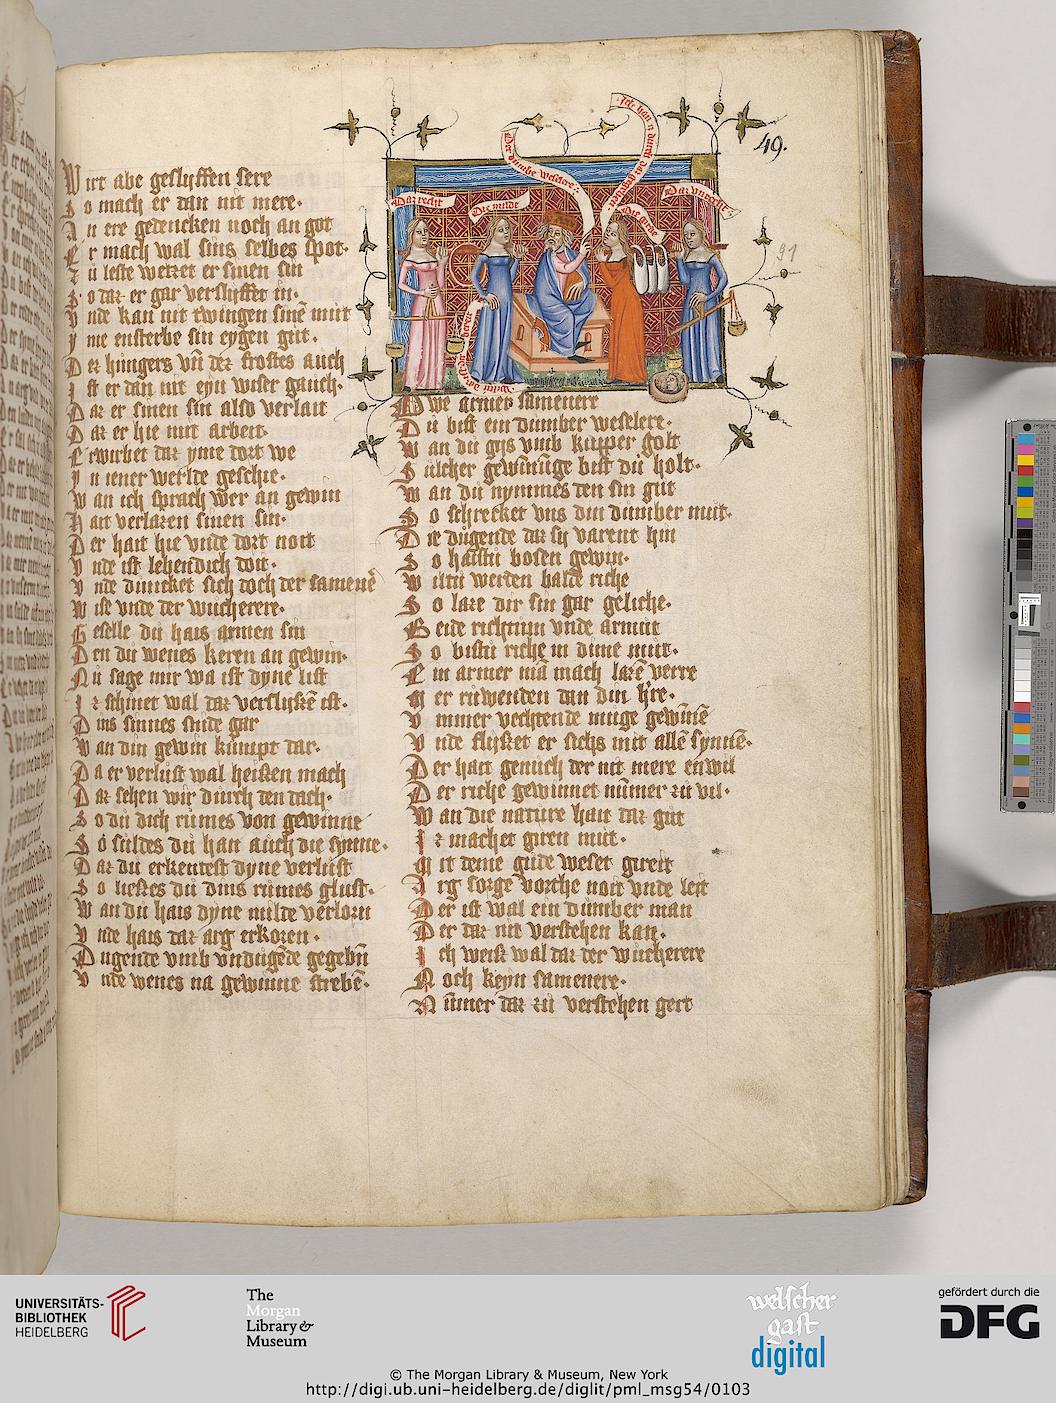 49.
91
Dar recht
Die milde
Der dumbe weseler
Wirt abe geslyffen sere
So mach er dan nit mere.
An ere gedencken noch an got
Er mach wal sins selbes spot.
Zu leste wetzet er sinen sin
So daz er gar verslyffet in.
Vnde kan nit twingen sinē mut
Yme ensterbe sin eygen gut.
Der hungers vn̄ der frostes auch
Ist er dan nit eyn wiser gauch.
Daz er sinen sin also verlait
Daz er hie mit arbeit.
Erwirbet daz yme dort we
In iener werlde geschie.
Wan ich sprach wer an gewin
Hait verlazen sinen sin.
Der hait hie vnde dort noit
Vnde ist lebendich doit.
Vnde duncket sich doch der samenē
Wise vnde der wucherere.
Geselle du hais armen sin
Den du wenes keren an gewin.
Nu sage mir wa ist dyne list
Iz schinet wal daz verslyssē ist.
Dins sinnes snide gar
Wan din gewin kumpt dar.
Da er verlust wal heissen mach
Daz sehen wir durch den dach.
So du dich rumes von gewinne
So suldes du han auch die synne.
Daz du erkentest dyne verlust
So liesses du dins rumes glust.
Wan du hais dyne milde verlorn
Vnde hais daz arg erkoren.
Dugende vmb vndugēde gegebn̄
Vnde wenes na gewinne strebē.
Owe armer samenere
Du bist ein dumber weselere.
Wan du gijs vmb kupper golt
Sulcher gewinnūge bist du holt.
Wan du nymmes den sin gut
So schrecket vns din dumber mut.
Die dugende daz sy varent hin
So haistu bosen gewin.
Wiltu werden balde riche
So laze dir sin gar geliche.
Beide richtum vnde armut
So bistu riche in dime mut.
Ein armer mā mach lazē verre
Mer ruwenden dan din h're.
Vmmer vechtende muge gewinē
Vnde flysset er sichs mit allē synnē.
Der hait genuch der nit mere enwil
Der riche gewinnet nūmer zu vil.
Wan die nature hait daz gut
Iz machet giren mut.
Mit deme gude weset gireit
Arg sorge vorthe noit vnde leit
Der ist wal ein dumber man
Der daz nit verstehen kan.
Ich weiß wal daz der wucherere
Noch keyn samenere.
Nūmer daz zu verstehen gert
UNIVERSITÄTS-
BIBLIOTHEK
HEIDELBERG
The
Morgan
Library &
Museum
welscher
gast
digital
gefördert durch die
DFG
© The Morgan Library & Museum, New York
http://digi.ub.uni-heidelberg.de/diglit/pml_msg54/0103